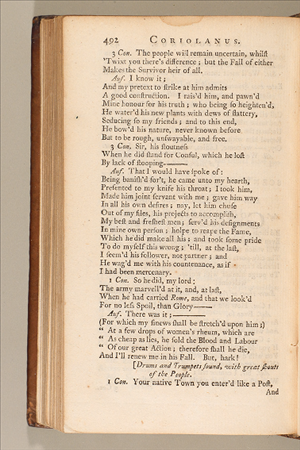 492 CORIOLANUS.
3 Con. The people will remain uncertain, whilst
'Twixt you there's difference; but the Fall of either
Makes the Survivor heir of all.
Auf. I know it;
And my pretext to strike at him admits
A good construction. I rais'd him, and pawn'd
Mine honour for his truth; who being so heighten'd,
He water'd his new plants with dews of flattery,
Seducing so my friends; and to this end,
He bow'd his nature, never known before
But to be rough, unswayable, and free.
3 Con. Sir, his stoutness
When he did stand for Consul, which he lost
By lack of stooping.——
Auf. That I would have spoke of:
Being banish'd for't, he came unto my hearth,
Presented to my knife his throat; I took him,
Made him joint servant with me; gave him way
In all his own desires; nay, let him chuse
Out of my files, his projects to accomplish,
My best and freshest men; serv'd his designments
In mine own person; holpe to reap the Fame,
Which he did make all his; and took some pride
To do myself this wrong; 'till, at the last,
I seem'd his follower, not partner; and
He wag'd me with his countenance, as if
I had been mercenary.
1 Con. So he did, my lord;
The army marvell'd at it, and, at last,
When he had carried Rome, and that we look'd
For no less Spoil, than Glory——
Auf. There was it;——
(For which my sinews shall be stretch'd upon him;)
" At a few drops of women's rheum, which are
" As cheap as lies, he sold the Blood and Labour
" Of our great Action; therefore shall he die,
And I'll renew me in his Fall. But, hark!
[Drums and Trumpets sound, with great shouts
of the People.
1 Con. Your native Town you enter'd like a Post,
And